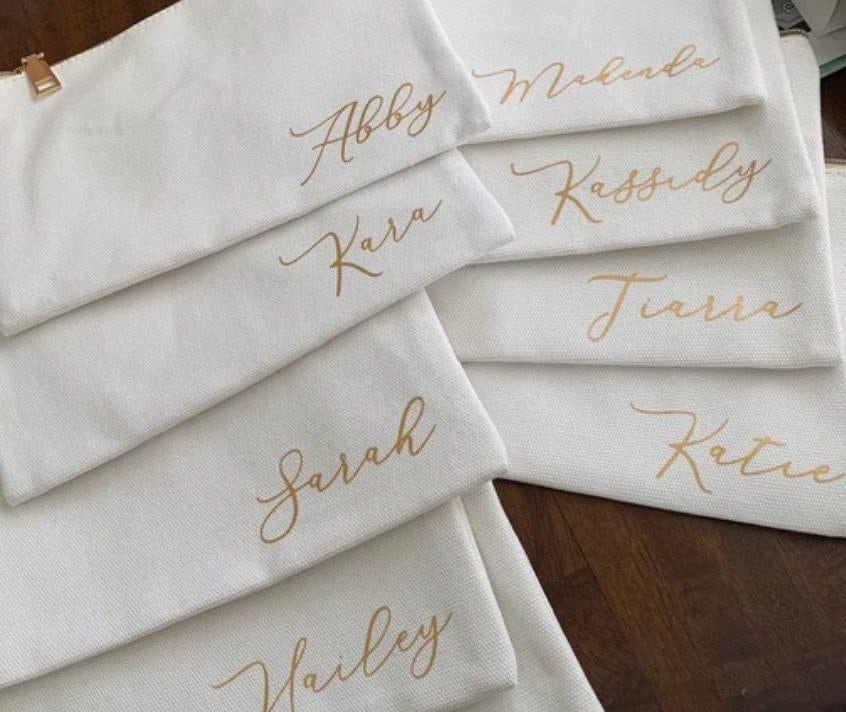 Abby
Kara
Sarah
Hailey
Makenda
Kassidy
Tiarra
Katie